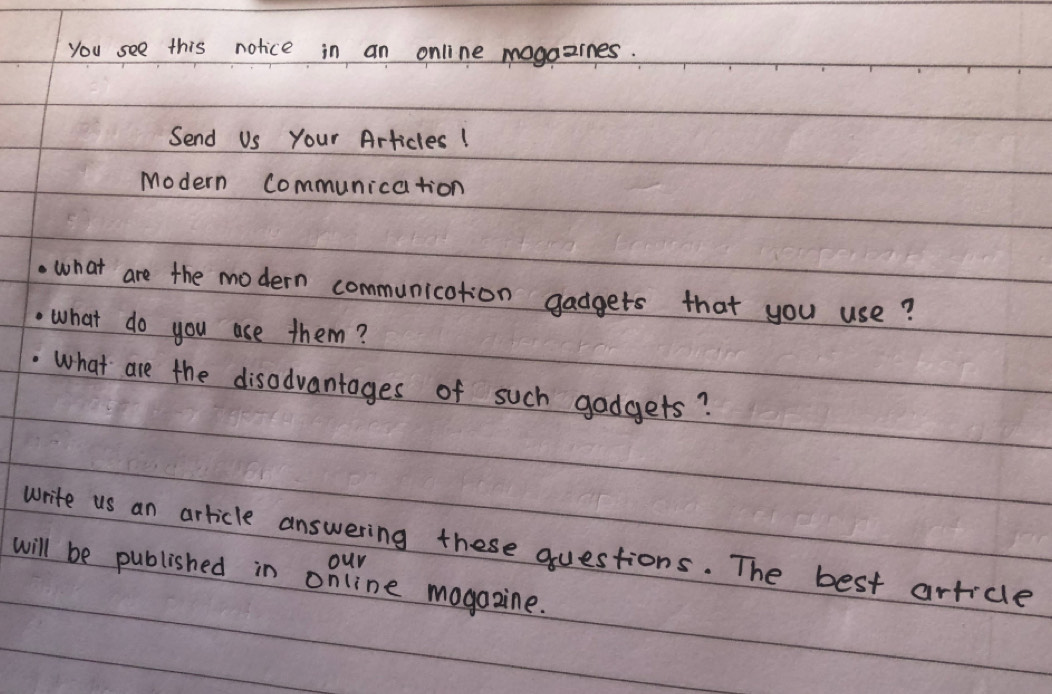 You see this notice in an online magazines.
Send Us Your Articles!
Modern Communication
• what are the modern communication gadgets that you use?
• what do you use them?
• What are the disadvantages of such gadgets?
Write us an article answering these questions. The best article
will be published in our online magazine.